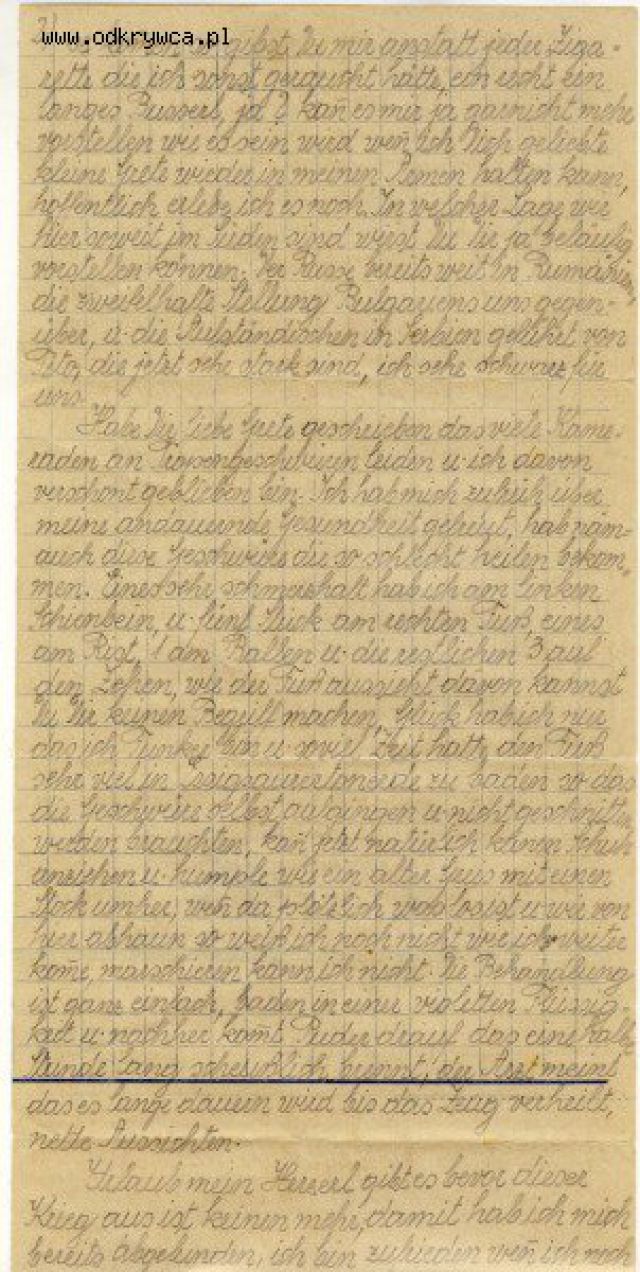 www.odkrywca.pl
gibst Du mir anstatt jeder Ziga-
rette die ich sonst geraucht hätte, ein recht ein
langes Busserl, ja? kan̄ es mir ja garnicht mehr
vorstellen wie es sein wird wen̄ ich Dich geliebte
kleine Grete wieder in meinen Armen halten kann,
hoffentlich erlebe ich es noch. In welcher Lage wir
hier soweit im Süden sind wirst Du Dir ja beiläufig
vorstellen können. Der Russe bereits weit in Rumänien,
die zweifelhafte Stellung Bulgariens uns gegen-
über, u. die Aufständischen in Serbien geführt von
Tito, die jetzt sehr stark sind, ich sehe schwarz für
uns.
Habe Dir liebe Grete geschrieben das viele Kame-
raden an Tropengeschwüren leiden u. ich davon
verschont geblieben bin. Ich hab mich zu früh über
meine andauernde Gesundheit gefreut, hab näm-
auch diese Geschwüre die so schlecht heilen bekom-
men. Eines sehr schmerzhaft hab ich am linken
Schienbein, u. fünf Stück am rechten Fuß, eines
am Rist, 1 am Ballen u. die restlichen 3 auf
den Zehen, wie der Fuß aussieht davon kannst
Du Dir keinen Begriff machen, Glück hab ich nur
das ich Funker bin u. soviel Zeit hatte den Fuß
sehr viel in Essigsaurertonerde zu baden so das
die Geschwüre selbst aufgingen u. nicht geschnitten
werden brauchten, kan̄ jetzt natürlich keinen Schuh
anziehen u. humple wie ein alter Greis mit einen
Stock umher, wen̄ da plötzlich was los ist u. wir von
hier abhaun so weiß ich noch nicht wie ich weiter
kom̄e, marschieren kann ich nicht. Die Behandlung
ist ganz einfach, baden in einer violetten Flüssig-
keit u. nachher kom̄t Puder drauf das eine halbe
Stunde lang scheußlich brennt, der Arzt meint
das es lange dauern wird bis das Zeug verheilt,
nette Aussichten.
Urlaub mein Herzerl gibt es bevor dieser
Krieg aus ist keinen mehr, damit hab ich mich
bereits abgefunden, ich bin zufrieden wen̄ ich noch